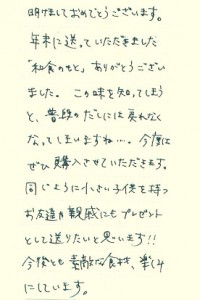 明けましておめでとうございます。
年末に送っていただきました
「和食のもと」ありがとうござい
ました。この味を知ってしまう
と、普段のだしには戻れなく
なってしまいますね…。今度は
ぜひ購入させていただきます。
同じように小さい子供を持つ
お友達や親戚にもプレゼント
として送りたいと思います!!
今後とも素敵な食材、楽しみ
にしています。